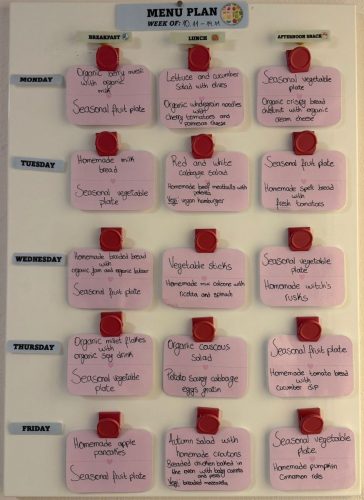 MENU PLAN
WEEK OF: 10.11-14.11
BREAKFAST
LUNCH
AFTERNOON SNACK
MONDAY
Organic berry muesli
with organic
milk
Seasonal fruit plate
Lettuce and cucumber
salad with olives
Organic wholegrain noodles
with
Cherry tomatoes and
parmesan cheese
Seasonal vegetable
plate
Organic crispy bread
with organic
cream cheese
TUESDAY
Homemade milk
bread
Seasonal vegetable
plate
Red and white
cabbage salad
Homemade beef meatballs with
Vegi: vegan hamburger
Seasonal fruit plate
Homemade spelt bread
with
fresh tomatoes
WEDNESDAY
Homemade braided bread
with
organic jam and organic butter
Seasonal fruit plate
Vegetable sticks
Homemade mix calzone with
ricotta and spinach
Seasonal vegetable
plate
Homemade witch's
rusks
THURSDAY
Organic millet flakes
with
organic soy drink
Seasonal vegetable
plate
Organic couscous
salad
Potato savoy cabbage
eggs gratin
Seasonal fruit plate
Homemade tomato bread
with
cucumber dip
FRIDAY
Homemade apple
pancakes
Seasonal fruit plate
Autumn Salad with
homemade croutons
Breaded chicken baked in
the oven with baby carrots
and
Vegi: breaded mozzarella
Seasonal vegetable
plate
Homemade pumpkin
Cinnamon rolls